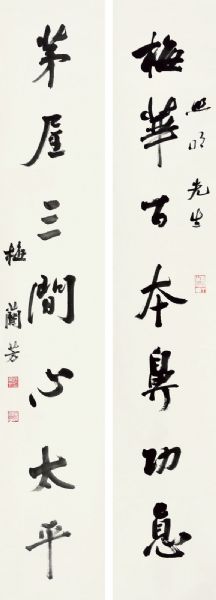 梅華百本鼻功悳
先生
茅屋三間心太平
梅蘭芳